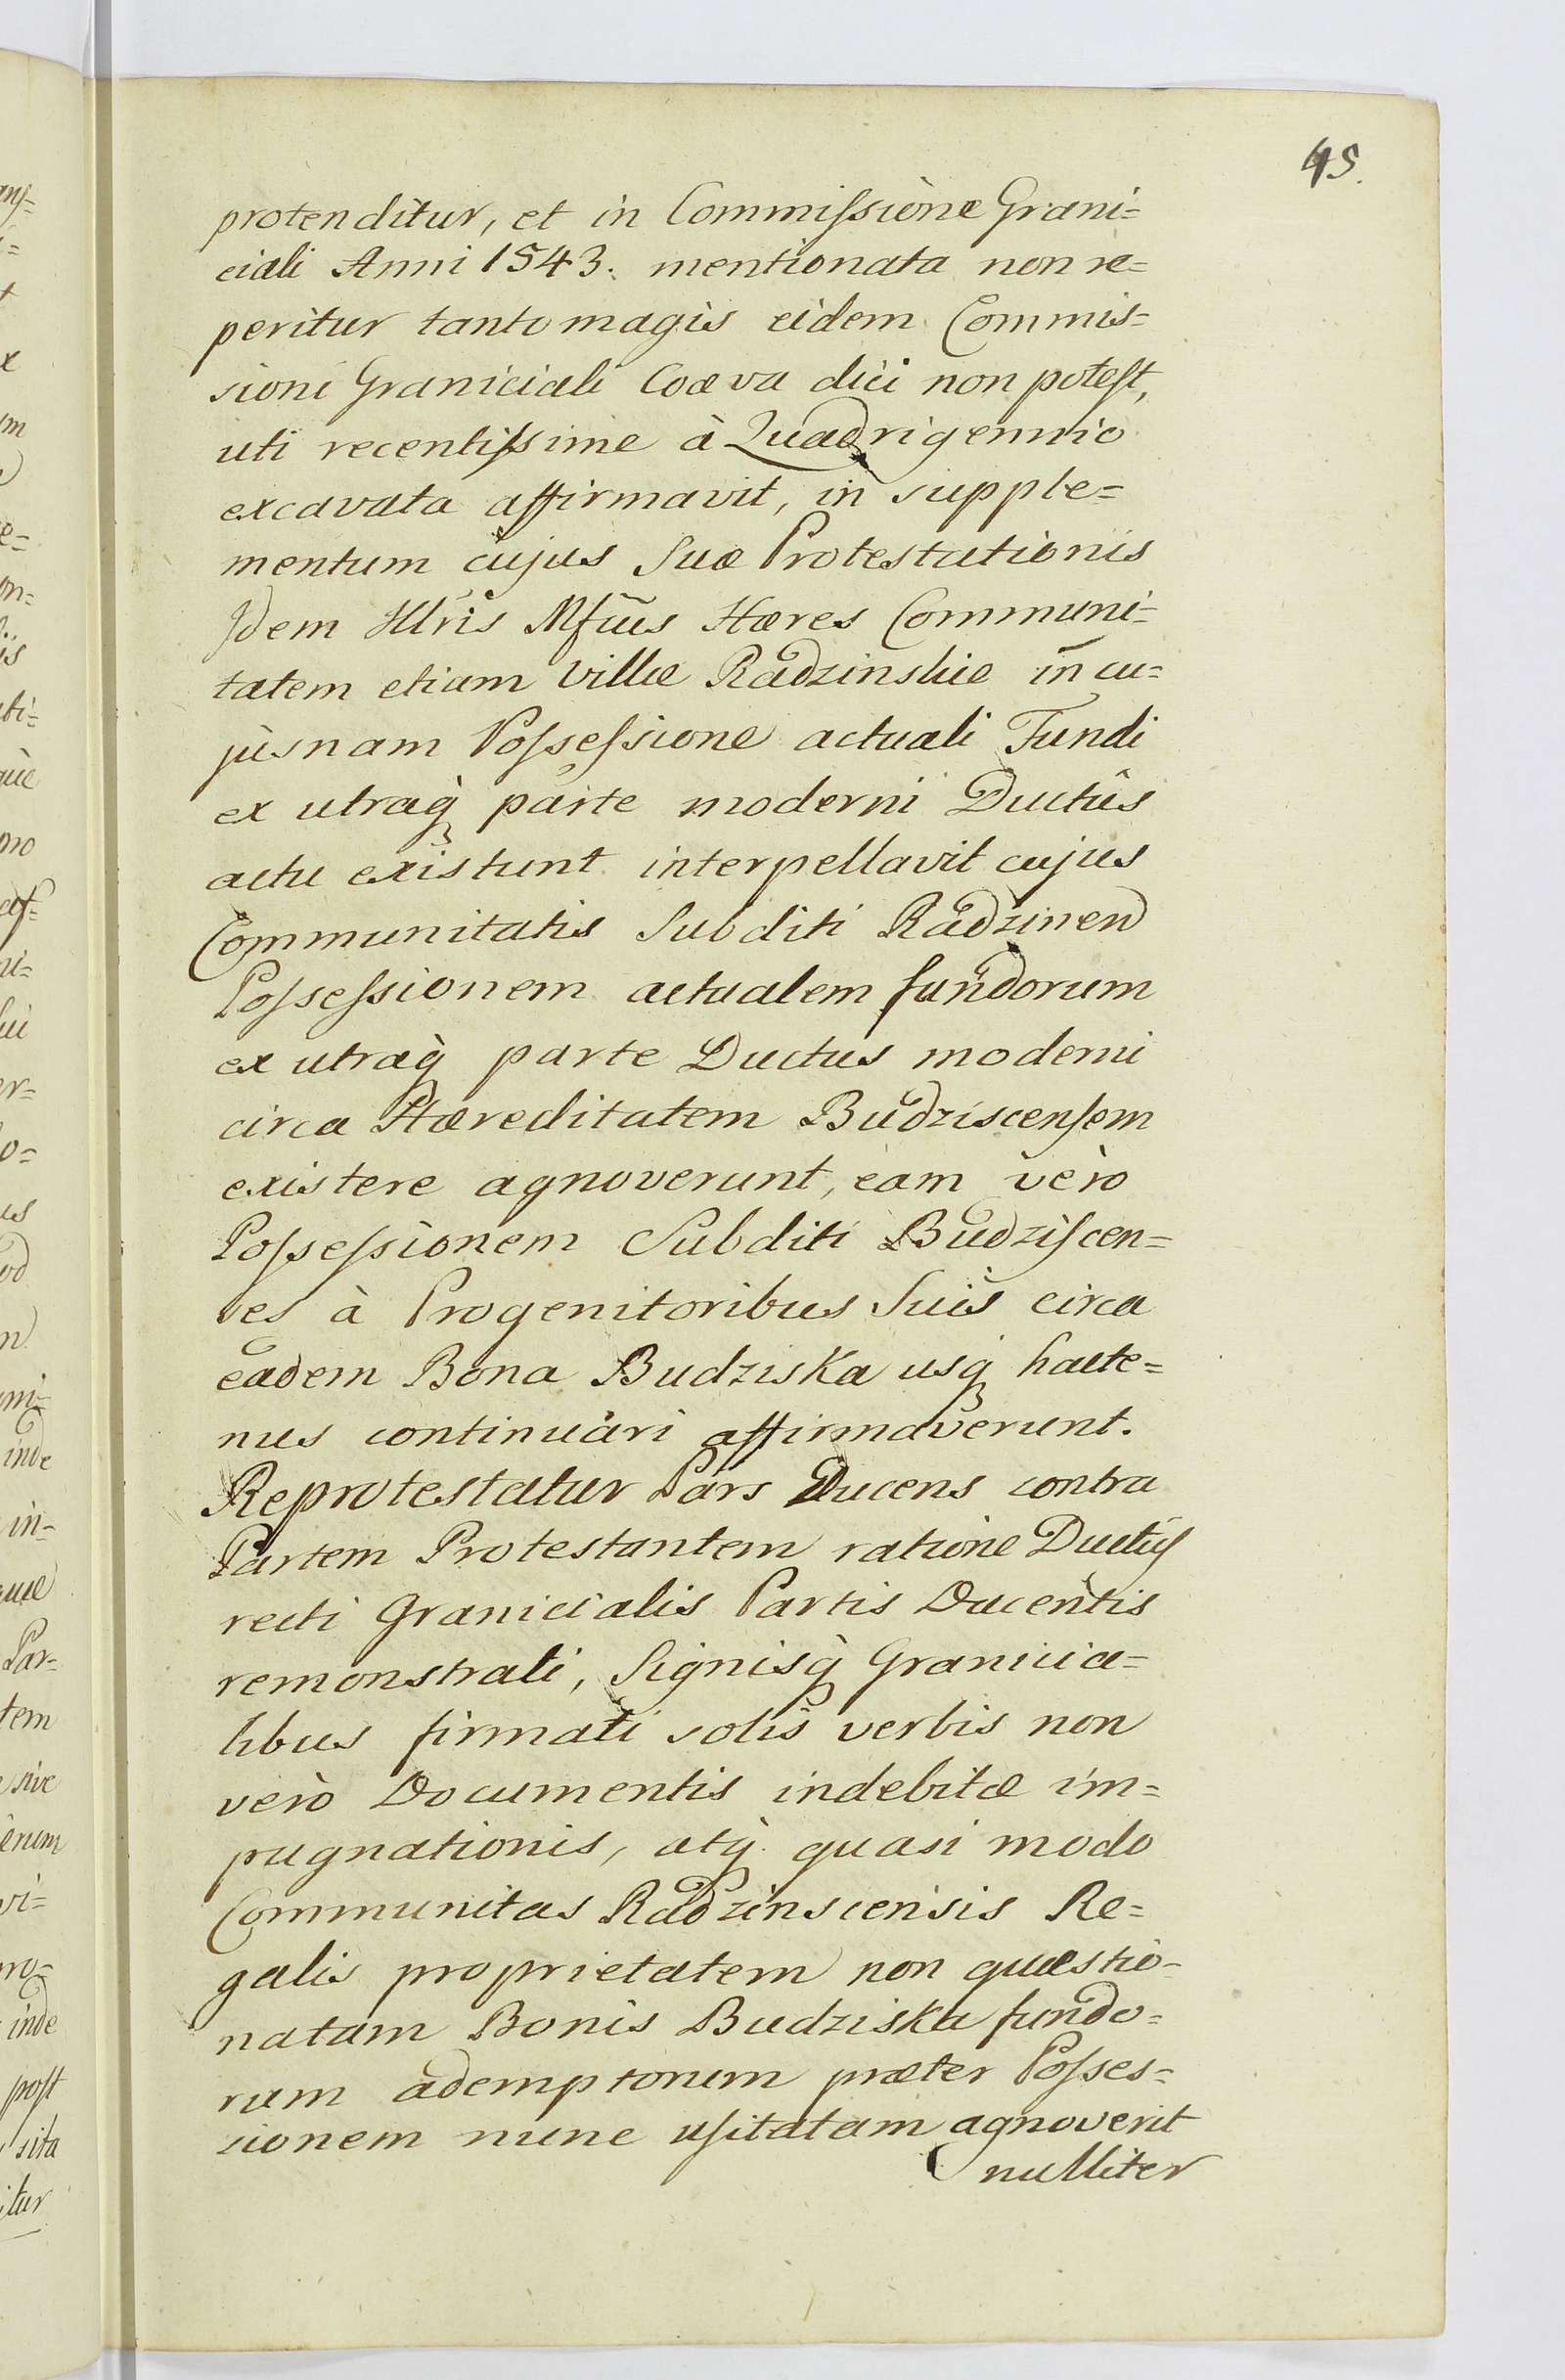 45.
protenditur, et in Commiſsione Grani=
ciali Anni 1543. mentionata non re=
peritur tanto magis eidem Commis=
sioni Graniciali Coæva dici non poteſt,
uti recentiſsime à Quadrigennio
excavata affirmavit, in supple=
mentum cujus Suæ Protestationis
Idem Illris Mfcus Hæres Communi=
tatem etiam Villæ Radzinskie in cu=
jusnam Poſseſsione actuali Fundi
ex utraq parte moderni Ductûs
actu existunt interpellavit cujus
Communitatis Subditi Radzinen
Poſseſsionem actualem fundorum
ex utraq parte Ductus moderni
circa Hæreditatem Budziscenſem
existere agnoverunt, eam vèro
Poſseſsionem Subditi Budziſcen=
ses à Progenitoribus Suis circa
eadem Bona Budziska usq hacte=
nus continuari affirmaverunt.
Reprotestatur Pars Ducens contra
Partem Protestantem ratione Ductûs
recti Granicialis Partis Ducentis
remonstrati, Signisq Granicia=
libus firmati solis verbis non
verò Documentis indebitæ im=
pugnationis, atq quasi modo
Communitas Radzinscensis Re=
galis proprietatem non quæstio=
natam Bonis Budziska fundo=
rum ademptorum præter Poſses=
sionem nunc uſitatam agnoverit
nulliter